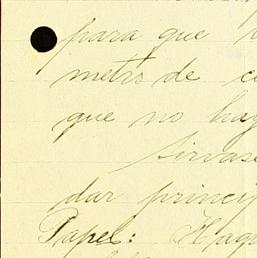 para que
metro de
que no hay
Sirvase
dar princi
Papel: Hag